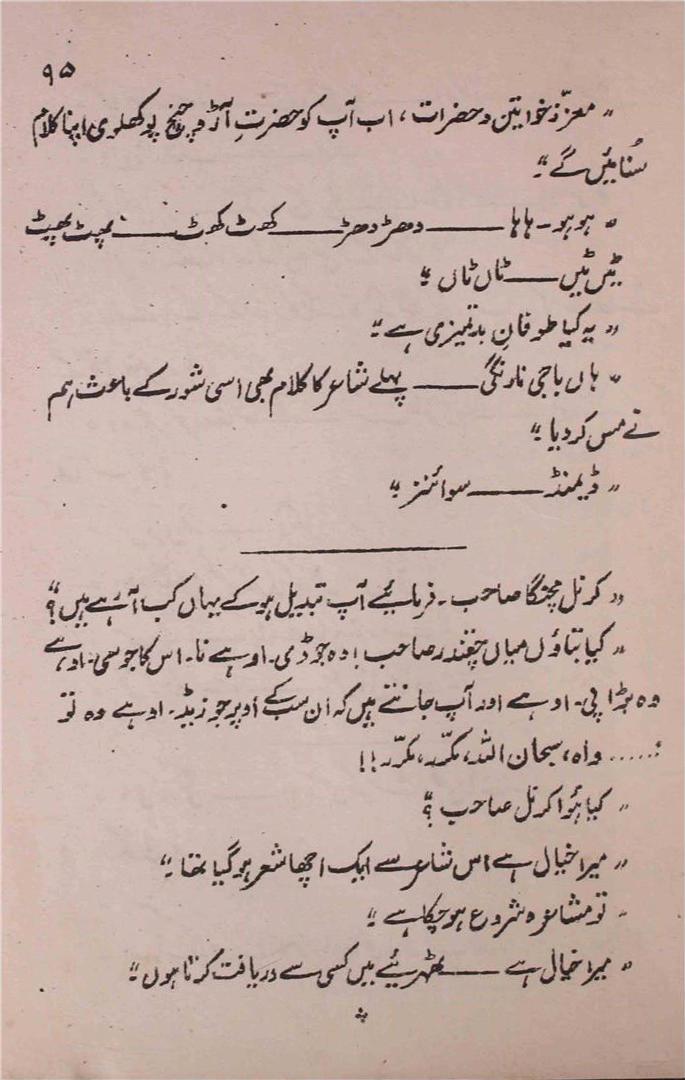 ۹۵
" معزّز خواتین و حضرات، اب آپ کو حضرتِ آڑو چیخ پوکھلوی اپنا کلام
سُنائیں گے "۔
" ہو ہو۔ ہا ہا —— دھڑ دھڑ —— کھوٹ کھوٹ —— پھٹ پھٹ
ٹیں ٹیں —— ٹاں ٹاں "۔
" یہ کیا طوفانِ بدتمیزی ہے "۔
" ہاں باجی نارنگی —— پہلے شاعر کا کلام بھی اسی شور کے باعث ہم
نے مس کر دیا "۔
" ڈیمنڈ —— سوائنز "۔
" کرنل مچنگا صاحب۔ فرمائیے آپ تبدیل ہو کے یہاں کب آ رہے ہیں؟"
" کیا بتاؤں میاں چقندر صاحب! وہ جو ڈی۔ او ہے نا۔ اس کا جو سی۔ او ہے
وہ بڑا پی۔ او ہے اور آپ جانتے ہیں کہ ان سب کے اوپر جو زیڈ۔ او ہے وہ تو
..... واہ، سبحان اللہ، مکرّر، مکرّر !!
" کیا ہُوا کرنل صاحب ؟"
" میرا خیال ہے اس شاعر سے ایک اچھا شعر ہو گیا تھا "۔
" تو مشاعرہ شروع ہو چکا ہے "۔
" میرا خیال ہے —— ٹھہریئے میں کسی سے دریافت کرتا ہوں "۔